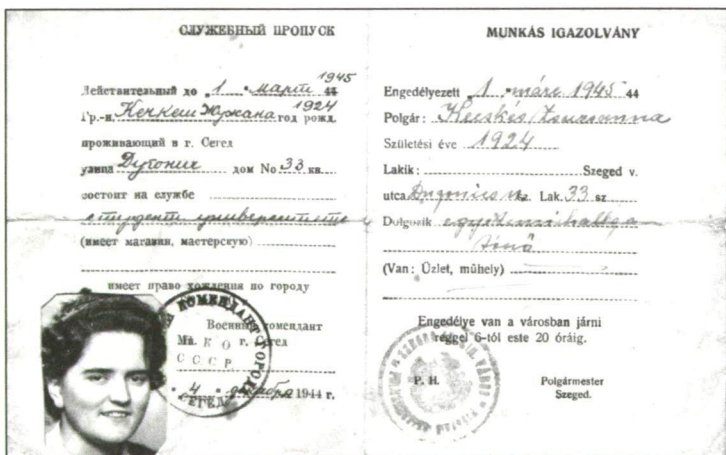 СЛУЖЕБНЫЙ ПРОПУСК
Действительный до „1 " март 1945 44
Гр.-н. Кечкеш Жужана 1924 год рожд.
проживающий в г. Сегед
улица Дугонич дом No 33 кв.
состоит на службе
студенти университета
(имеет магазин, мастерскую)
имеет право хождения по городу
Военный комендант
Май. К О г. Сегед
С С С Р.
" 4 " декабря 1944 г.
КОМЕНДАНТ ГОРОДА
СЕГЕД
MUNKÁS IGAZOLVÁNY
Engedélyezett „1 " márc 1945 44
Polgár: Kecskés Zsuzsanna
Születési éve 1924
Lakik: Szeged v.
utca Dugonics u. Lak. 33 sz
Dolgozik egyetemi hallga
tónő
(Van: Üzlet, műhely)
Engedélye van a városban járni
reggel 6-tól este 20 óráig.
P. H. Polgármester
Szeged.